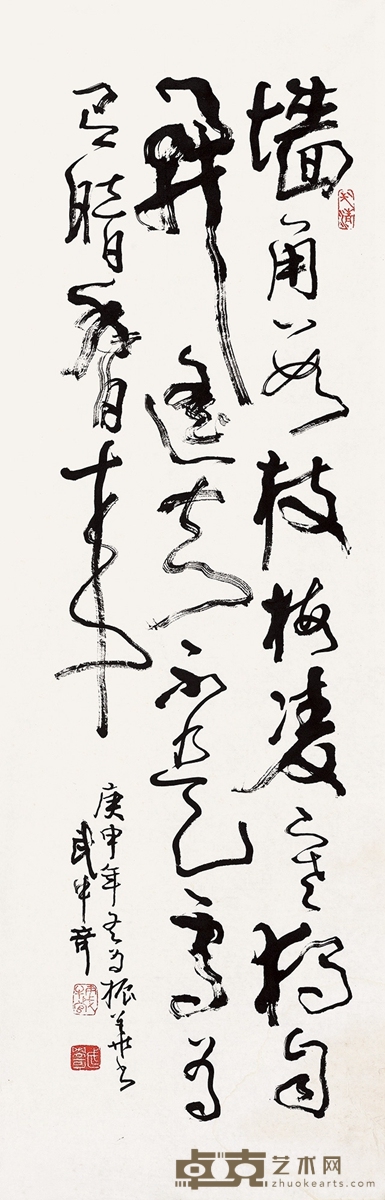 墙角数枝梅凌寒独自
開遥知不是雪为
有暗香来
庚申年冬为振華书
武中奇
卓克艺术网
zhuokearts.com